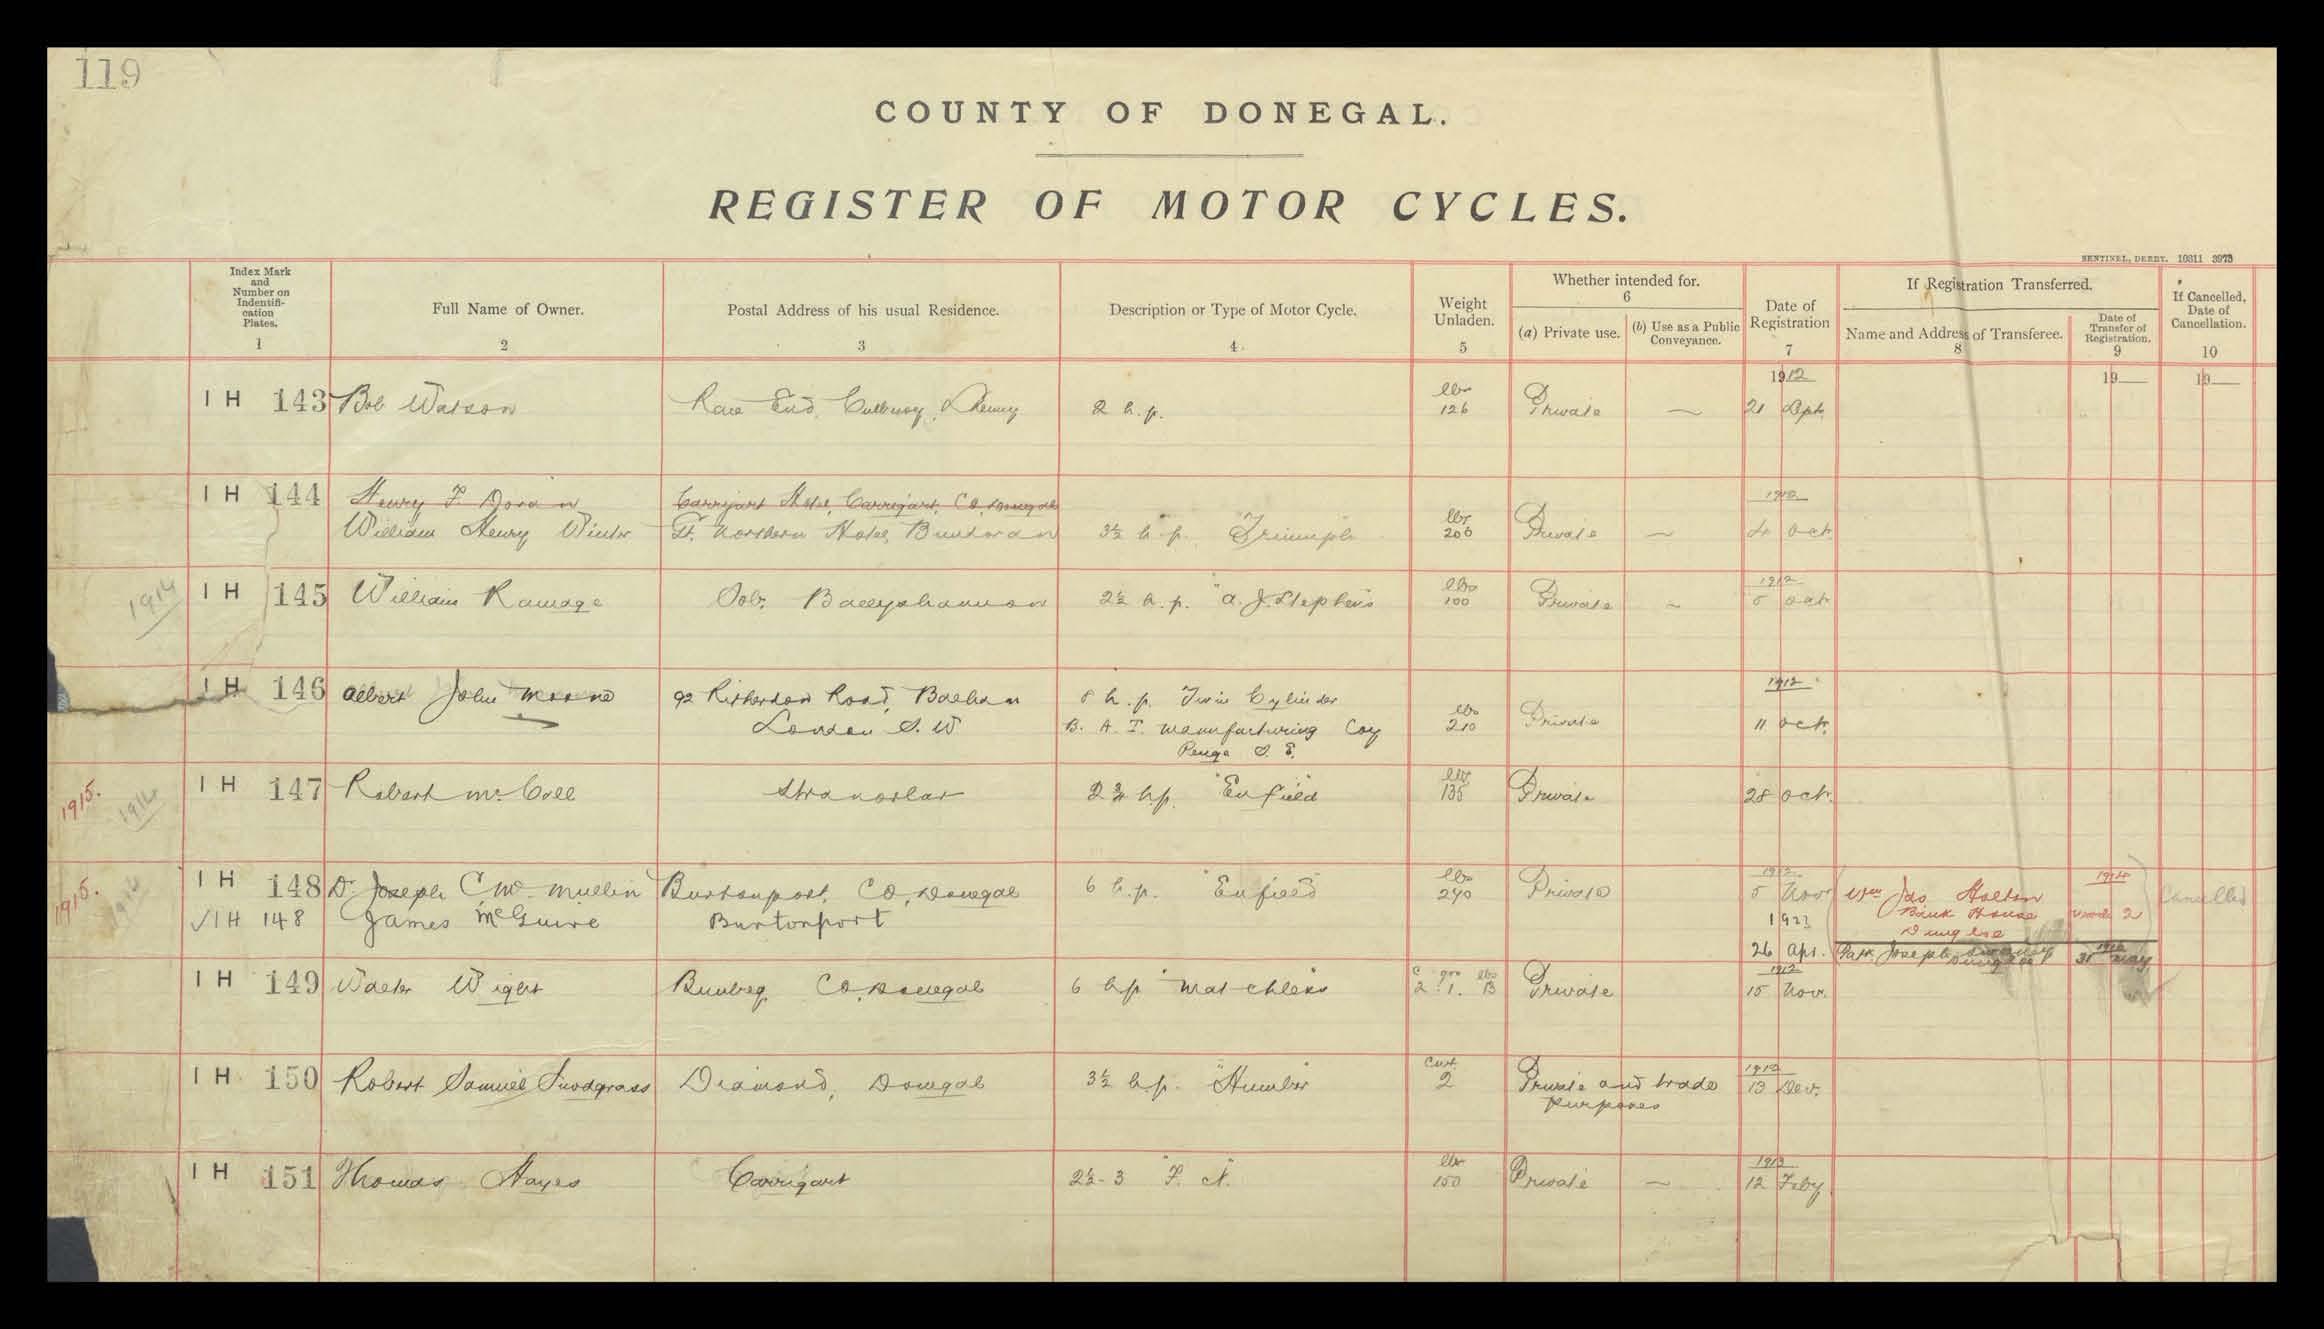 119
COUNTY OF DONEGAL.
REGISTER OF MOTOR CYCLES.
SENTINEL, DERRY. 10311 3973
Index Mark and Number on Indentifi-cation Plates. 1
Full Name of Owner. 2
Postal Address of his usual Residence. 3
Description or Type of Motor Cycle. 4.
Weight Unladen. 5
Whether intended for. 6
(a) Private use.
(b) Use as a Public Conveyance.
Date of Registration 7
If Registration Transferred.
Name and Address of Transferee. 8
Date of Transfer of Registration. 9
If Cancelled, Date of Cancellation. 10
1912 19 19
lbs
IH 143 Bob Watson End, Culmore, Derry 2 h.p. 126 Private 21 Sept.
IH 144 Henry F. Doran Carrigart Hotel, Carrigart, Co. Donegal 1912
William Henry Winter Gt. Northern Hotel, Bundoran 3½ h.p. "Triumph lbs 206 Private 4 Oct.
1914 IH 145 William Ramage Ballyshannon 2½ h.p. "A. J. Stephens lbs 100 Private 1912 5 Oct
IH 146 Albert John Moore 92 Road, Balham 8 h.p. Twin Cylinder 1912
London S. W B. A. T. Manufacturing Coy lbs 210 Private 11 Oct.
Penge S. E.
1915. 1914 IH 147 Robert McColl Stranorlar 2¾ h.p. "Enfield" lbs 135 Private 28 Oct.
1915. 1914 IH 148 Dr. Joseph C. McMullin Burtonport, Co. Donegal 6 h.p. "Enfield" lbs 290 Private 1912 5 Nov Wm Jas Holton 1914 Cancelled
√IH 148 James McGuire Burtonport 1923 Bank House March 2
Dungloe
26 Apr. Patk. Joseph Sweeney Dungloe 31 May
IH 149 Walter Wight Bunbeg, Co. Donegal 6 h.p. "Matchless c qrs lbs 2. 1. 13 Private 1912 15 Nov.
IH 150 Robert Samuel Snodgrass Diamond, Donegal 3½ h.p. "Humber cwt. 2 Private and trade 1912 13 Dec.
purposes
IH 151 Thomas Hayes Carrigart 2½-3 "F. N." lbs 150 Private 1913 12 Feby